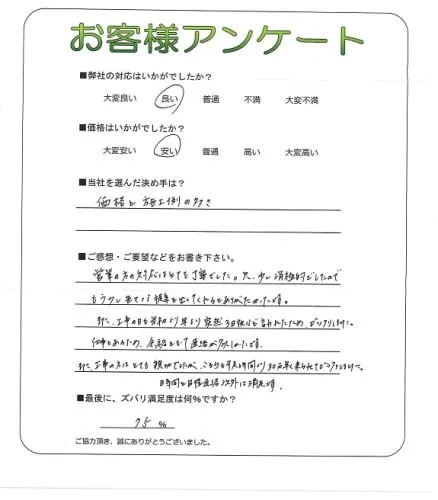 お客様アンケート
■弊社の対応はいかがでしたか？
大変良い 良い 普通 不満 大変不満
■価格はいかがでしたか？
大変安い 安い 普通 高い 大変高い
■当社を選んだ決め手は？
価格と施工例の多さ
■ご感想・ご要望などをお書き下さい。
営業の方の対応はとても丁寧でした。只、少し消極的でしたので
もう少し
また、工事の日も 突然3日後と言われたため、びっくりしました。
仕事もあるため、余裕をもって連絡が
また、工事の方は とても 親切でしたが、 時間より30分 早く来られて
日時間と日程連絡以外は満足です。
■最後に、ズバリ満足度は何％ですか？
75 %
ご協力頂き、誠にありがとうございました。